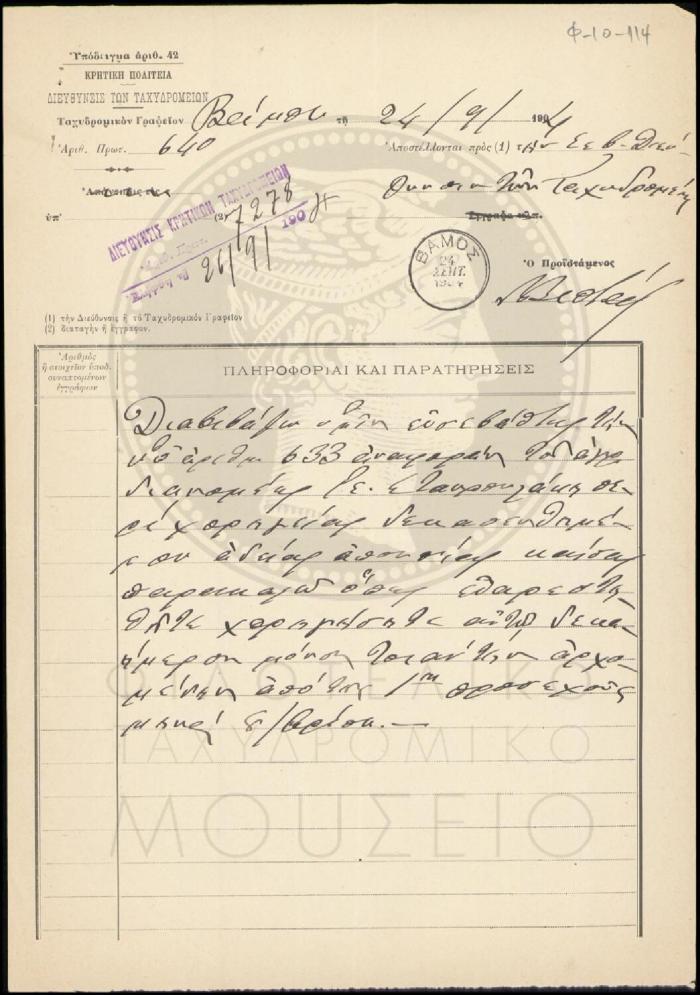 Φ-10-114
Ὑπόδειγμα ἀριθ. 42
ΚΡΗΤΙΚΗ ΠΟΛΙΤΕΙΑ
ΔΙΕΥΘΥΝΣΙΣ ΤΩΝ ΤΑΧΥΔΡΟΜΕΙΩΝ
Ταχυδρομικὸν Γραφεῖον Βάμου τῇ 24/9/1904
Ἀριθ. Πρωτ. 640
Ἀποστέλλονται πρὸς (1) τὴν Σεβ. Διεύ
θυνσιν τῶν Ταχυδρομείων
Ἀπάντησις εἰς
ὑπ' (2)
Ἔγγραφα
ΔΙΕΥΘΥΝΣΙΣ ΚΡΗΤΙΚΩΝ ΤΑΧΥΔΡΟΜΕΙΩΝ
Ἀριθ. Πρωτ. 7278
26/9/ 1904
ΒΑΜΟΣ
24
ΣΕΠΤ.
1904
Ὁ Προϊστάμενος
(1) τὴν Διεύθυνσιν ἢ τὸ Ταχυδρομικὸν Γραφεῖον
(2) διαταγὴν ἢ ἔγγραφον.
Ἀριθμὸς
ἢ στοιχεῖον ὑποδ.
συναπτομένων
ἐγγράφων
ΠΛΗΡΟΦΟΡΙΑΙ ΚΑΙ ΠΑΡΑΤΗΡΗΣΕΙΣ
Διαβιβάζω ὑμῖν εὐσεβάστως τὴν
ὑπ' ἀριθμ 633 ἀναφορὰν τοῦ ἀγρ.
διανομέως Γε. Σταυρουλάκη πε
ρὶ χορηγείας δεκαπενθημέ
ρου ἀδείας ἀπουσίας καὶ
παρακαλῶ ὅπως εὐαρεστη
θῆτε χορηγήσητε αὐτῷ δεκα
ήμερον μόνον τοιαύτην ἀρχο
μένην ἀπὸ τῆς 1ης προσεχοῦς
μηνὸς 8/βρίου.—
ΦΙΛΟΤΕΛΙΚΟ
ΤΑΧΥΔΡΟΜΙΚΟ
ΜΟΥΣΕΙΟ